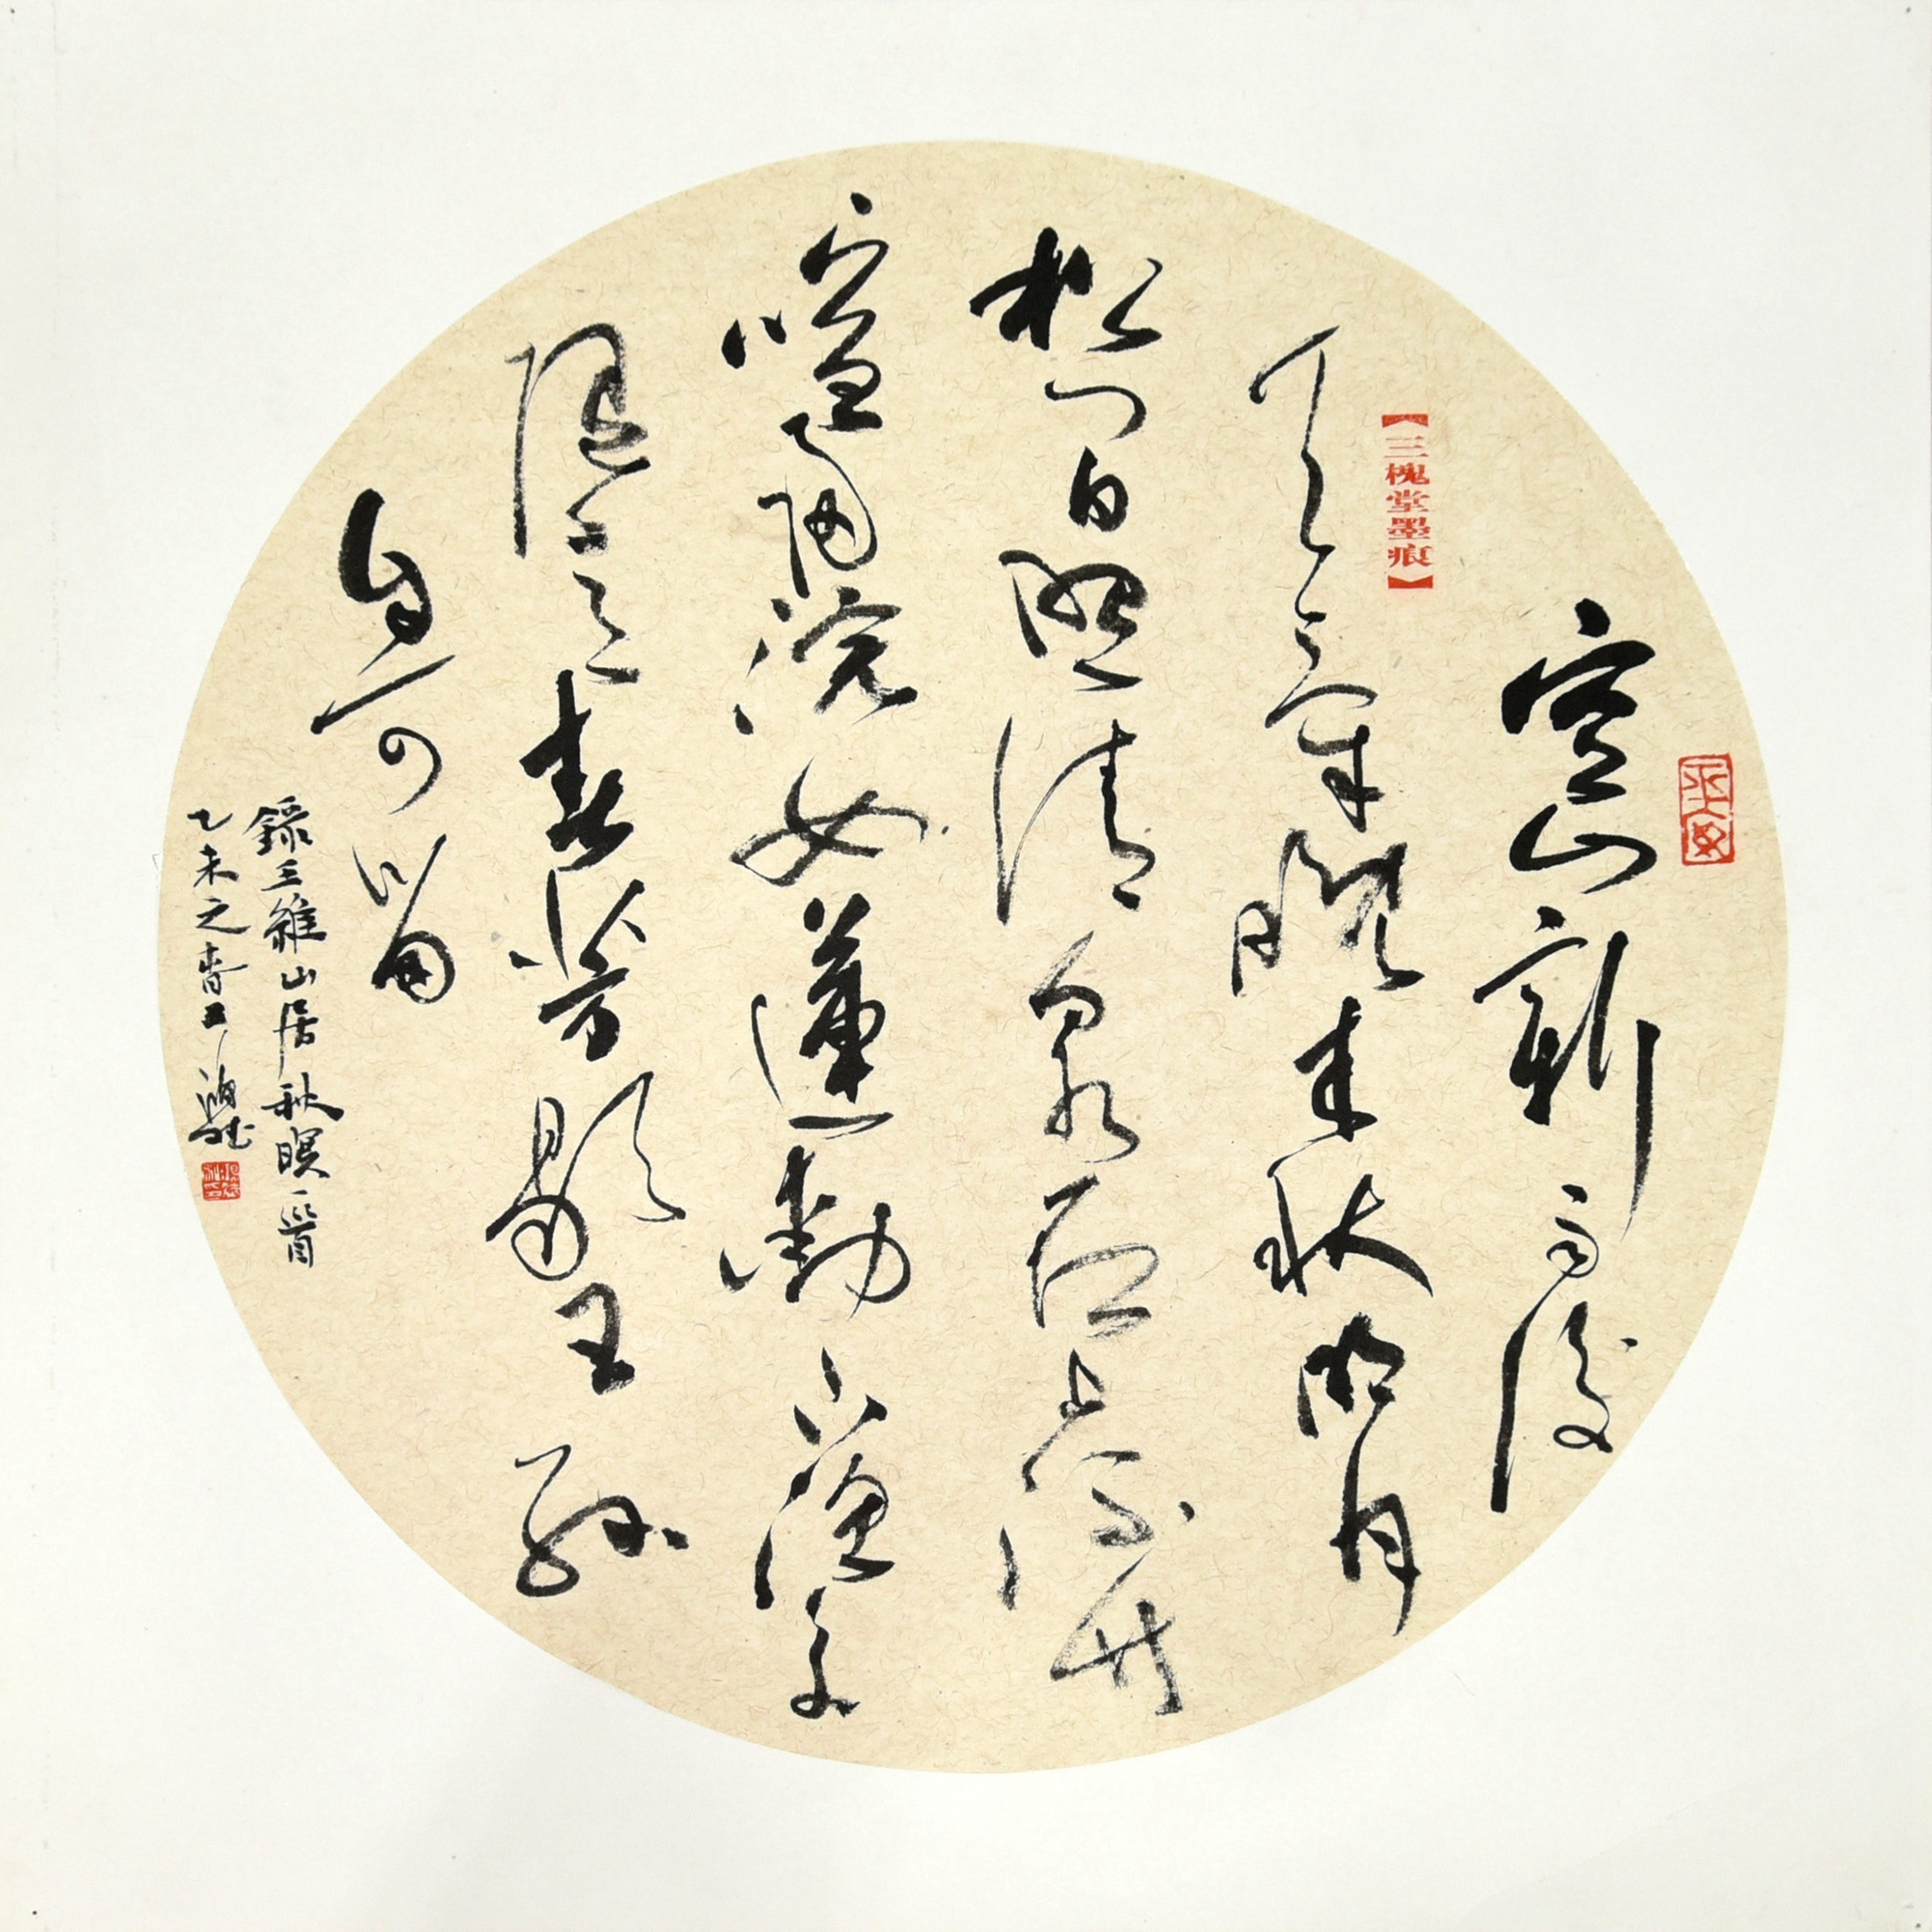 空山新雨後
【三槐堂墨痕】
天氣晚来秋明月
松間照清泉石上流竹
喧歸浣女蓮動下漁舟
随意春芳歇王孫
自可留
録王維山居秋暝一首
乙未之春王